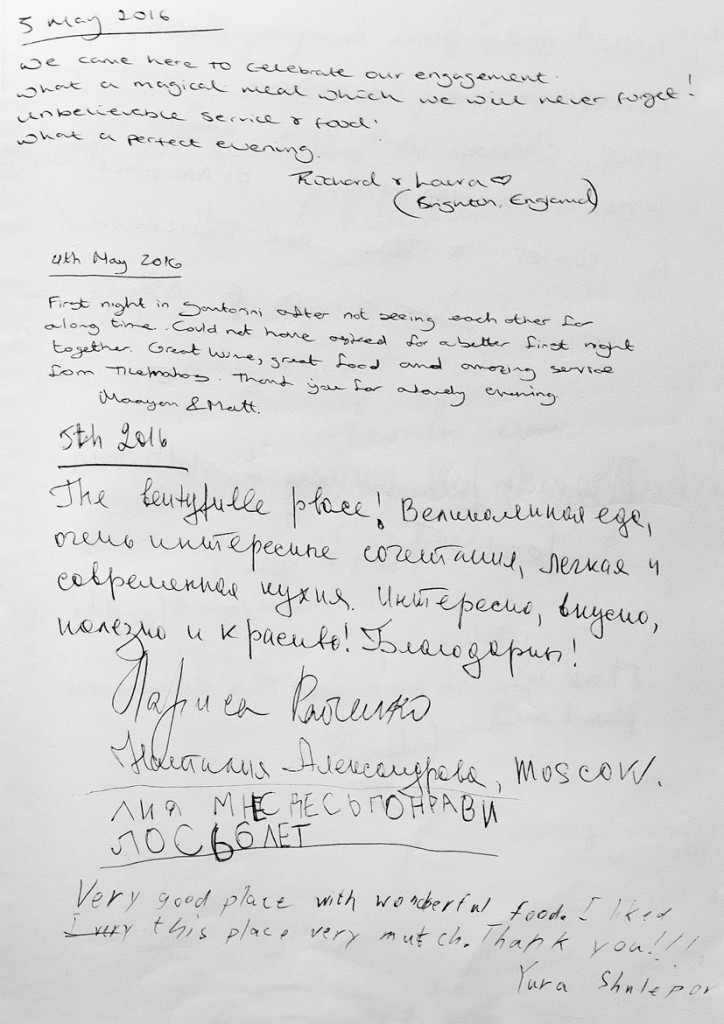 5 May 2016
We came here to celebrate our engagement.
What a magical meal which we will never forget!
Unbelievable service & food.
What a perfect evening.
Richard & Laura ♡
(Brighton, England)
4th May 2016
First night in Santorini after not seeing each other for
a long time. Could not have asked for a better first night
together. Great wine, great food and amazing service
from Tilemahos. Thank you for a lovely evening.
Maayan & Matt.
5th 2016
The beutyfulle place! Великолепная еда,
очень интересные сочетания, легкая и
современная кухня. Интересно, вкусно,
полезно и красиво! Благодарим!
Лариса
Наталия Александрова, MOSCOW.
ЛИЯ МНЕ СДЕСЬ ПОНРАВИ
ЛОСЬ 6 ЛЕТ
Very good place with wonderful food. I liked
I very this place very mutch. Thank you!!!
Yura Shulepov